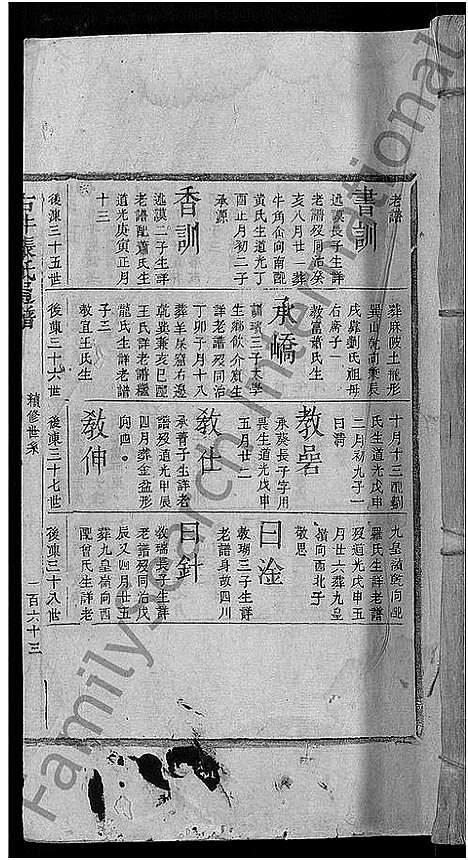 老譜
書訓
述謨長子生詳
老譜歿同治癸
亥八月廿一葬
牛角崙向南配
黃氏生道光丁
酉正月初二子
承源
香訓
述謨二子生詳
老譜配蕭氏生
道光庚寅正月
十三
後東三十五世
葬麻陂土龍形
巽山乾向兼辰
戌葬劉氏祖母
右旁子一
教富蕭氏生
承嶠
訓璸三子大學
生鄉飲介賓生
詳老譜歿同治
丁卯子月十八
葬羊屎窟右邊
乾巽兼亥巳配
王氏詳老譜繼
龍氏生詳老譜
子三
教宜王氏生
後東三十六世
十月十三配劉
氏生道光戊申
二月初九子一
曰清
教㟁
承蔡長子字用
巽生道光戊申
五月廿二
教仕
承菁子生詳老
譜歿道光甲辰
四月葬金盆形
向西
教伸
後東三十七世
九皇嶺乾向配
羅氏生詳老譜
歿道光戊申五
月廿六葬九皇
嶺向西北子
教恩
曰淦
教瑚三子生詳
老譜身故四川
曰針
教瑞長子生詳
老譜歿同治戊
辰又四月廿五
葬九皇嶺向西
配曾氏生詳老
後東三十八世
張氏
譜
續修世系
一百六十三
FamilySearch International